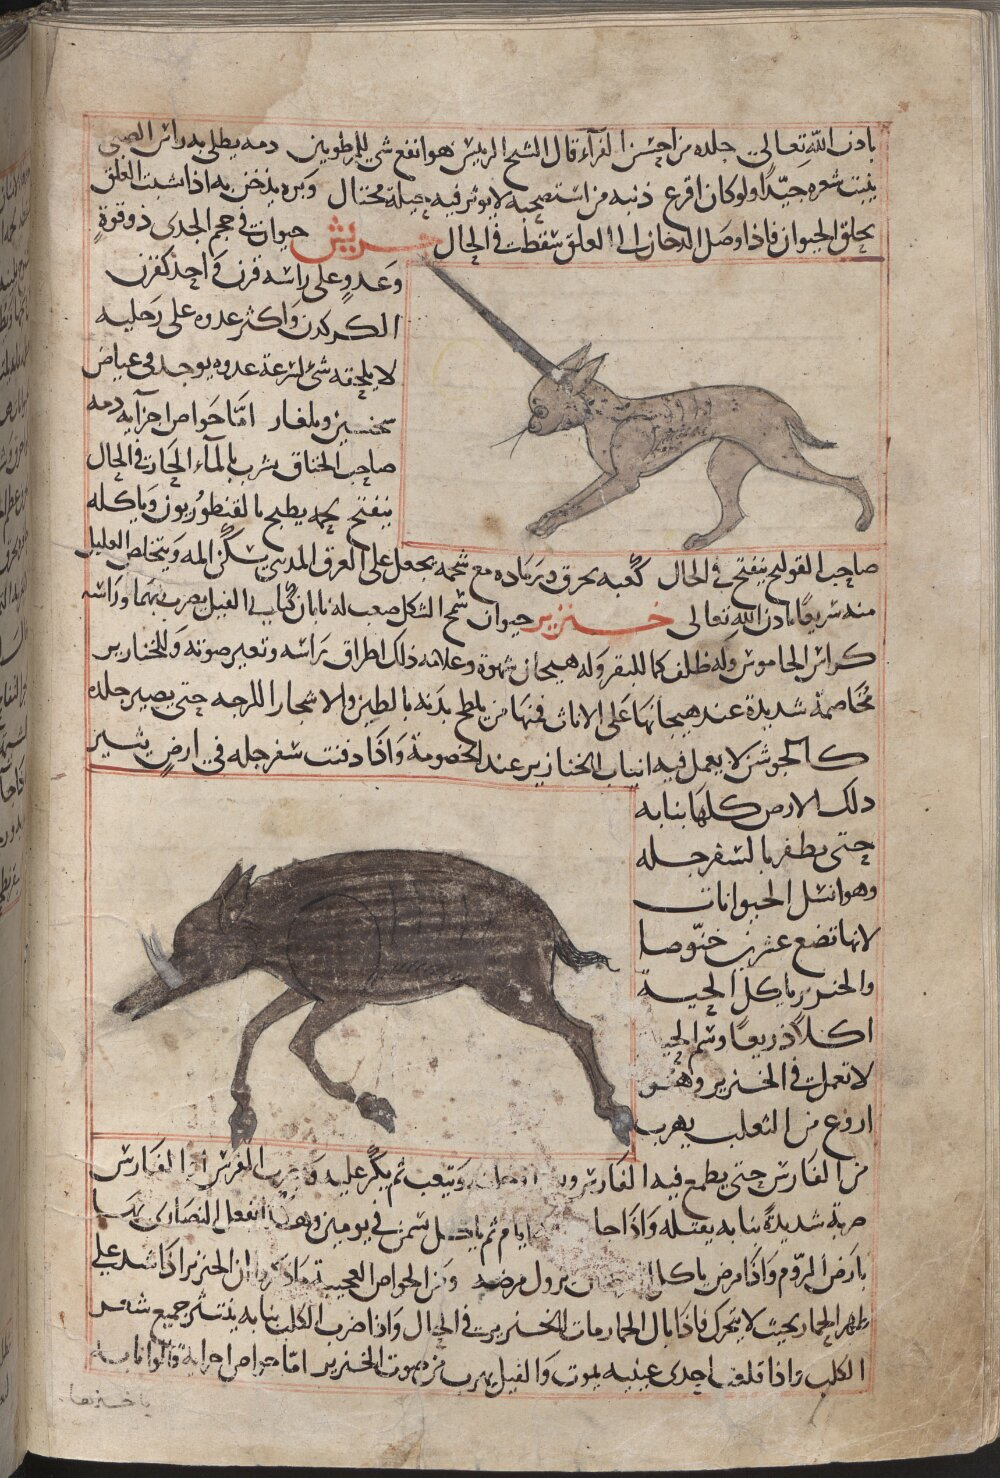 باذن الله تعالى جلده من احسن الفرآء قال الشيخ الرييس هو انفع شي للمرطوبين دمه يطلى به راس الصبى
ينبت شعره جيّدًا ولو كان اقرع ذنبه من استصحبه لا يوثر فيه حيلة محتال وبره يدخن به اذا شبت العلق
بحلق الحيوان فاذا وصل الدخان الى العلق سقطت فى الحال حريش حيوان فى حجم الجدى ذو قوةٍ
وعدوٍ على راسه قرن واحد كقرن
الكركدن واكثر عدوه على رجليه
لا يلحقه شئ لسرعة عدوه يوجد فى غياض
وبلغار امّا خواص اجزآيه دمه
صاحب الخناق يشرب بالمآء الحار فى الحال
ينفتح لحمه يطبخ بالقنطوريون وياكله
صاحب القولنج ينفتح فى الحال كعبه يحرق ورماده مع شحمه يجعل على العرق المدنى يسكن المه ويتخلص العليل
منه سريعًا باذن الله تعالى خنزير حيوان سمج الشكل صعب له نابان كناب الفيل يضرب بهما وراسه
كراس الجاموس وله ظلف كما للبقر وله هيجان شهوة وعلامة ذلك اطراق راسه وتغير صوته وللخنازير
مخاصمة شديدة عند هيجانها على الاناث فمنها من يلطخ بدنه بالطين والاشجار اللزجه حتى يصير جلده
كالجوشن لا يعمل فيه انياب الخنازير عند الخصومة واذا دفنت سفرجله فى ارضٍ يثير
ذلك الارض كلها بنابه
حتى يظفر بالسفرجله
وهو انسل الحيوانات
لانها تضع عشرين خنّوصا
والخنزير ياكل الحية
اكلًا ذريعًا وسم الحية
لا تعمل فى الخنزير وهو
اروغ من الثعلب يهرب
من الفارس حتى يطمع فيه الفارس ويتعب ثم يكرّ عليه ويضرب الفرس او الفارس
ضربة شديدةً بنابه يقتله واذا جا ايام ثم ياكل سمن فى يومين وهكذا تفعل النصارى
بارض الروم واذا مرض ياكل يزول مرضه ومن الخواص العجيبة ان الخنزير اذا شد على
ظهر الحمار بحيث لا يتحرك فاذا بال الحمار مات الخنزير فى الحال واذا ضرب الكلب بنابه ينتثر جميع شعر
الكلب واذا قلعت احدى عينيه يموت والفيل يهرب من صوت الخنزير امّا خواص اجزايه